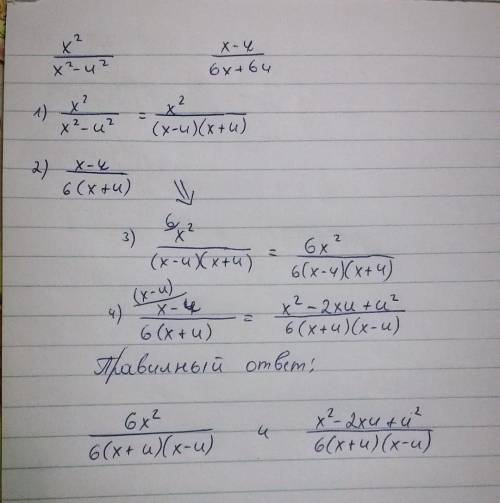 x²/(x²-u²) x-u/(6x+6u)
1) x²/(x²-u²) = x²/((x-u)(x+u))
2) x-u/(6(x+u))
⇘
3) 6/ x²/((x-u)(x+u)) = 6x²/(6(x-u)(x+u))
4) (x-u)/ x-u/(6(x+u)) = x²-2xu+u²/(6(x+u)(x-u))
Правилный ответ:
6x²/(6(x+u)(x-u)) и x²-2xu+u²/(6(x+u)(x-u))